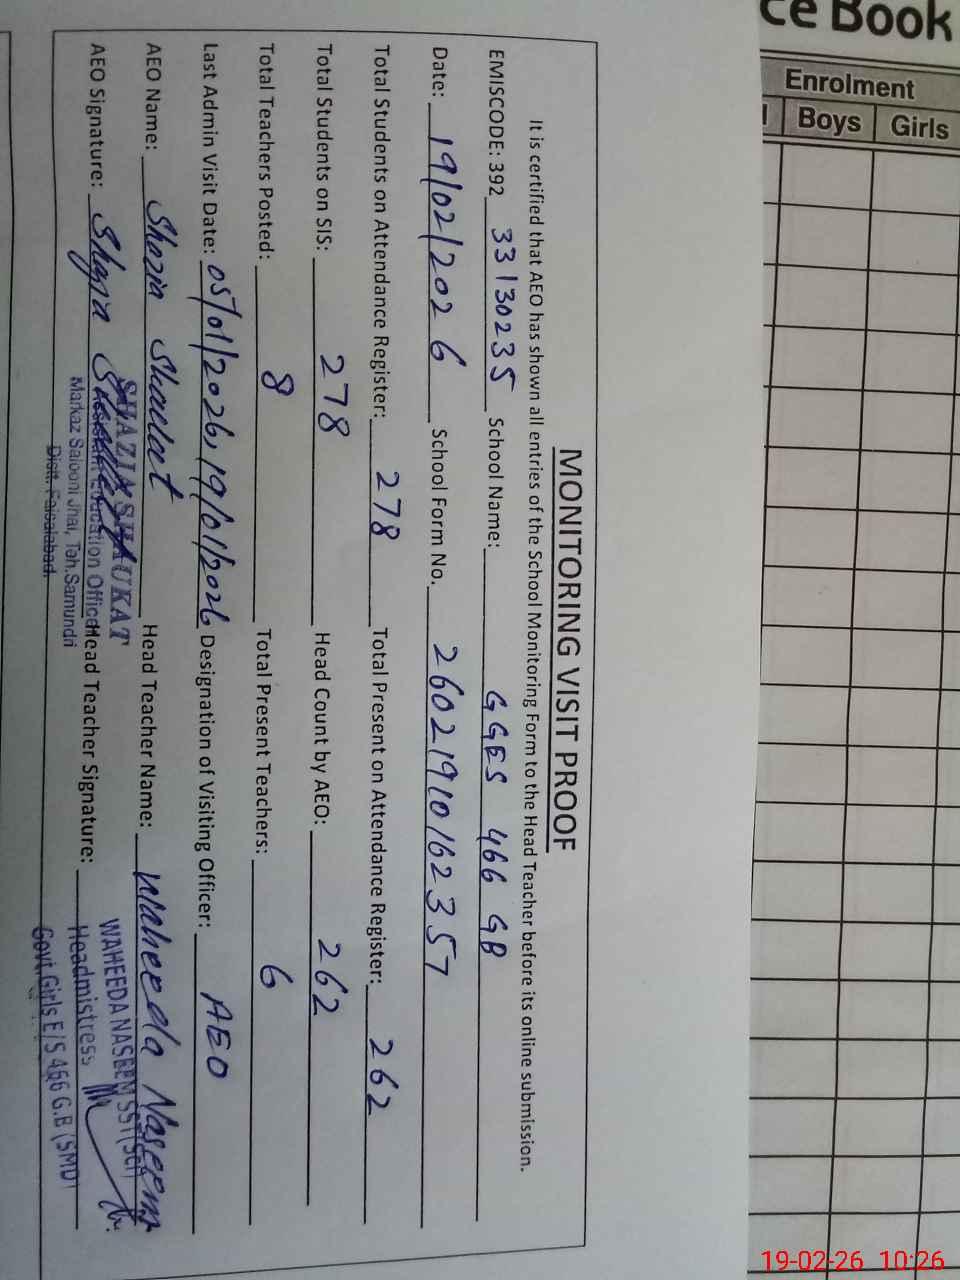 MONITORING VISIT PROOF
It is certified that AEO has shown all entries of the School Monitoring Form to the Head Teacher before its online submission.
EMISCODE: 392 33130235 School Name: GGES 466 GB
Date: 19/02/2026 School Form No. 26021910162357
Total Students on Attendance Register: 278 Total Present on Attendance Register: 262
Total Students on SIS: 278 Head Count by AEO: 262
Total Teachers Posted: 8 Total Present Teachers: 6
Last Admin Visit Date: 05/01/2026, 19/01/2026 Designation of Visiting Officer: AEO
AEO Name: Shazia Shaukat Head Teacher Name: Waheeda Naseem
AEO Signature: Shazia Head Teacher Signature:
SHAZIA SHAUKAT
Assistant Education Officer
Markaz Salooni Jhal, Teh.Samundri
Distt. Faisalabad.
WAHEEDA NASEEM SST(Sci)
Headmistress
Govt Girls E/S 466 G.B (SMD)
ce Book
Enrolment
Boys Girls
19-02-26 10:26